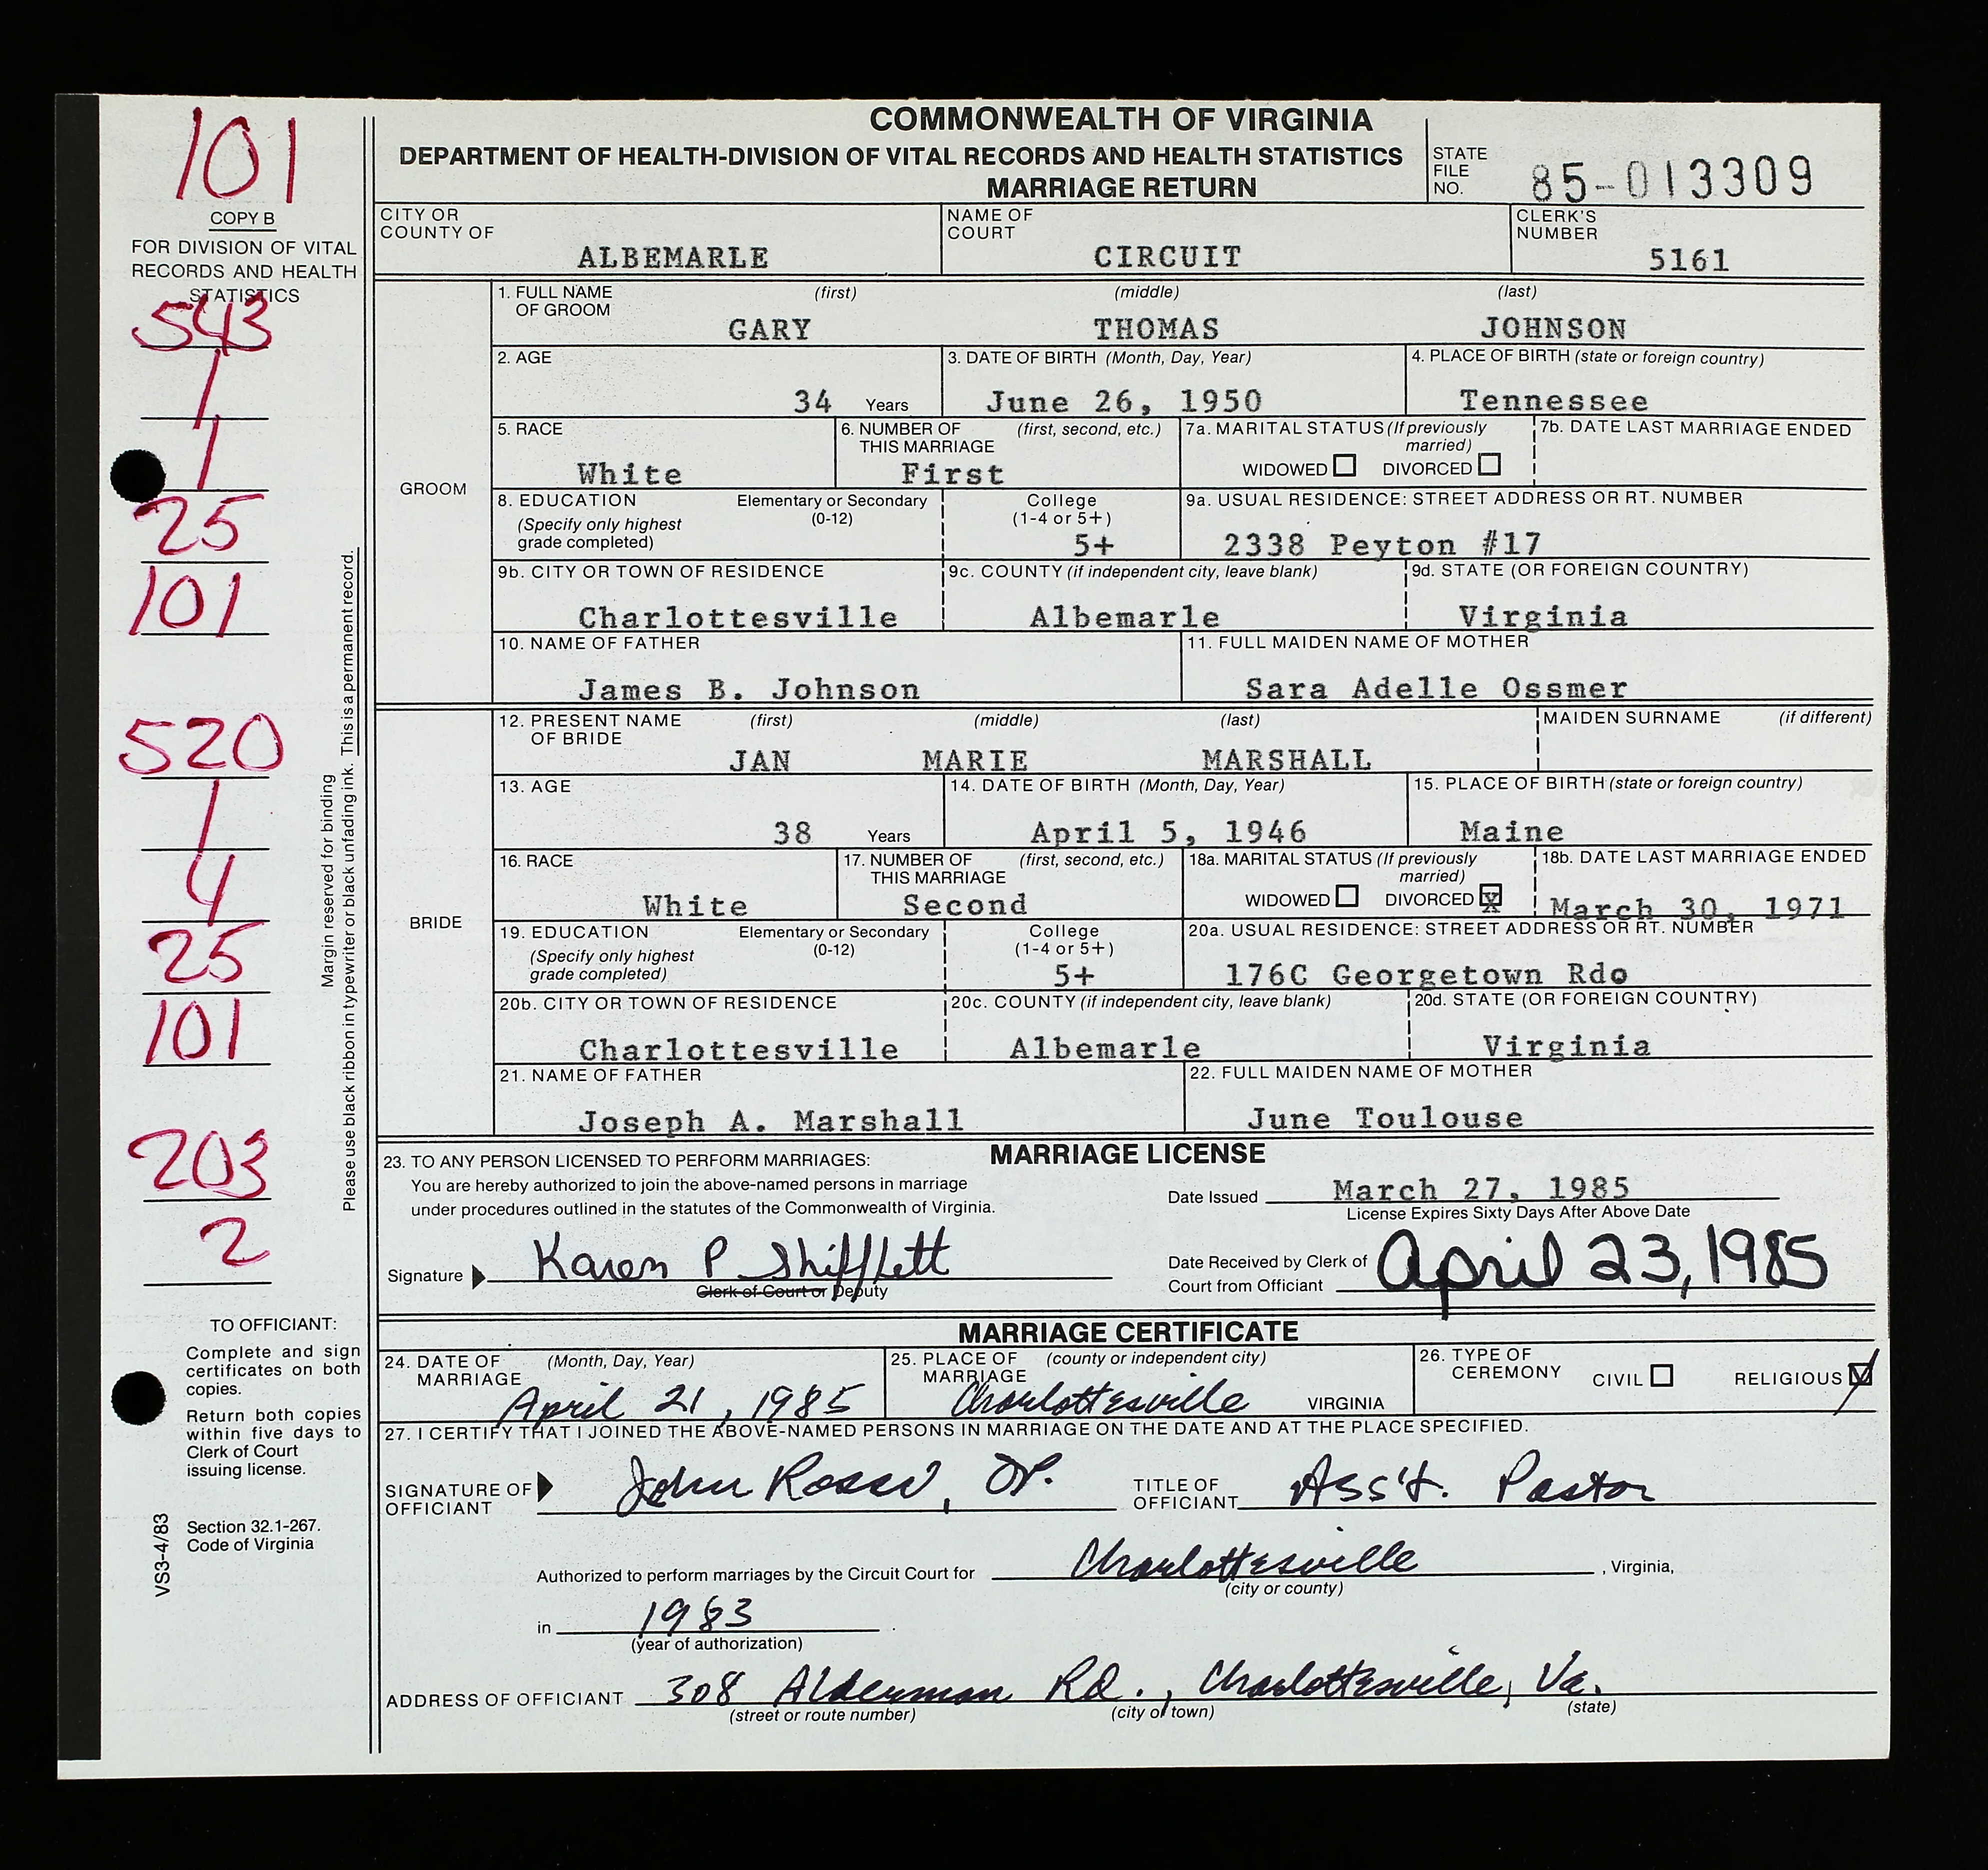 COMMONWEALTH OF VIRGINIA
DEPARTMENT OF HEALTH-DIVISION OF VITAL RECORDS AND HEALTH STATISTICS
MARRIAGE RETURN
STATE FILE NO. 85-013309
101
COPY B
FOR DIVISION OF VITAL
RECORDS AND HEALTH
STATISTICS
543
1
1
25
101
520
1
4
25
101
203
2
Margin reserved for binding
Please use black ribbon in typewriter or black unfading ink. This is a permanent record.
TO OFFICIANT:
Complete and sign
certificates on both
copies.
Return both copies
within five days to
Clerk of Court
issuing license.
Section 32.1-267.
Code of Virginia
VS3-4/83
CITY OR COUNTY OF ALBEMARLE
NAME OF COURT CIRCUIT
CLERK'S NUMBER 5161
GROOM
1. FULL NAME OF GROOM (first) (middle) (last)
GARY THOMAS JOHNSON
2. AGE 34 Years
3. DATE OF BIRTH (Month, Day, Year) June 26, 1950
4. PLACE OF BIRTH (state or foreign country) Tennessee
5. RACE White
6. NUMBER OF THIS MARRIAGE (first, second, etc.) First
7a. MARITAL STATUS (If previously married) WIDOWED DIVORCED
7b. DATE LAST MARRIAGE ENDED
8. EDUCATION (Specify only highest grade completed) Elementary or Secondary (0-12) College (1-4 or 5+) 5+
9a. USUAL RESIDENCE: STREET ADDRESS OR RT. NUMBER 2338 Peyton #17
9b. CITY OR TOWN OF RESIDENCE Charlottesville
9c. COUNTY (if independent city, leave blank) Albemarle
9d. STATE (OR FOREIGN COUNTRY) Virginia
10. NAME OF FATHER James B. Johnson
11. FULL MAIDEN NAME OF MOTHER Sara Adelle Ossmer
BRIDE
12. PRESENT NAME OF BRIDE (first) (middle) (last) MAIDEN SURNAME (if different)
JAN MARIE MARSHALL
13. AGE 38 Years
14. DATE OF BIRTH (Month, Day, Year) April 5, 1946
15. PLACE OF BIRTH (state or foreign country) Maine
16. RACE White
17. NUMBER OF THIS MARRIAGE (first, second, etc.) Second
18a. MARITAL STATUS (If previously married) WIDOWED DIVORCED X
18b. DATE LAST MARRIAGE ENDED March 30, 1971
19. EDUCATION (Specify only highest grade completed) Elementary or Secondary (0-12) College (1-4 or 5+) 5+
20a. USUAL RESIDENCE: STREET ADDRESS OR RT. NUMBER 176C Georgetown Rdo
20b. CITY OR TOWN OF RESIDENCE Charlottesville
20c. COUNTY (if independent city, leave blank) Albemarle
20d. STATE (OR FOREIGN COUNTRY) Virginia
21. NAME OF FATHER Joseph A. Marshall
22. FULL MAIDEN NAME OF MOTHER June Toulouse
MARRIAGE LICENSE
23. TO ANY PERSON LICENSED TO PERFORM MARRIAGES:
You are hereby authorized to join the above-named persons in marriage
under procedures outlined in the statutes of the Commonwealth of Virginia.
Date Issued March 27, 1985
License Expires Sixty Days After Above Date
Signature Karen P Shifflett
Clerk of Court or Deputy
Date Received by Clerk of Court from Officiant April 23, 1985
MARRIAGE CERTIFICATE
24. DATE OF MARRIAGE (Month, Day, Year) April 21, 1985
25. PLACE OF MARRIAGE (county or independent city) Charlottesville VIRGINIA
26. TYPE OF CEREMONY CIVIL RELIGIOUS
27. I CERTIFY THAT I JOINED THE ABOVE-NAMED PERSONS IN MARRIAGE ON THE DATE AND AT THE PLACE SPECIFIED.
SIGNATURE OF OFFICIANT John
TITLE OF OFFICIANT Ass't. Pastor
Authorized to perform marriages by the Circuit Court for Charlottesville, Virginia,
(city or county)
in 1983
(year of authorization)
ADDRESS OF OFFICIANT 308 Alderman Rd., Charlottesville, Va.
(street or route number) (city or town) (state)